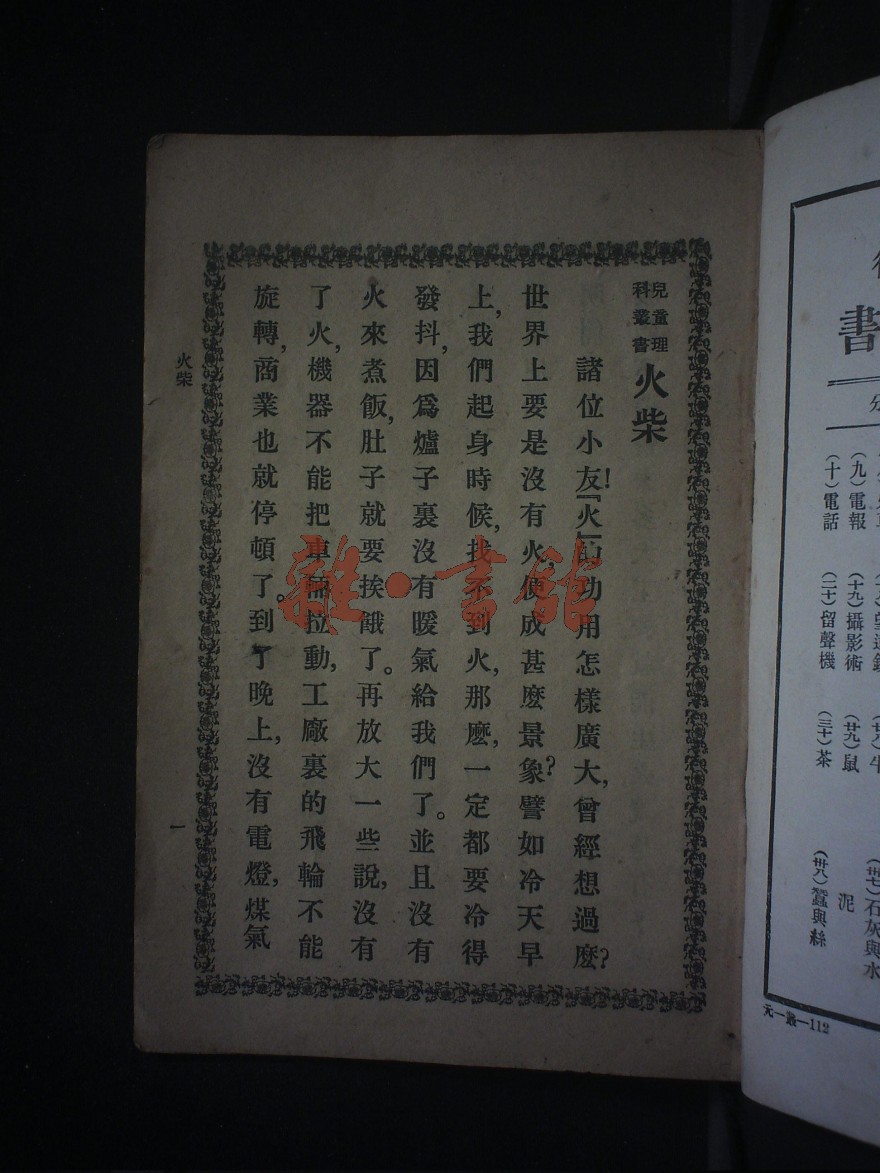 兒童理
科叢書
火柴
諸位小友！『火』的功用怎樣廣大，曾經想過麽？
世界上要是沒有火，便成甚麽景象？譬如冷天早
上，我們起身時候，找不到火，那麽，一定都要冷得
發抖，因爲爐子裏沒有暖氣給我們了。並且沒有
火來煮飯，肚子就要挨餓了。再放大一些說，沒有
了火，機器不能把車輛拉動，工廠裏的飛輪不能
旋轉，商業也就停頓了。到了晚上，沒有電燈，煤氣
火柴
一
雜·書館
書
分
（九）電報
（十）電話
（十九）攝影術
（二十）留聲機
（廿九）鼠
（三十）茶
（卅七）石灰與水
泥
（卅八）蠶與絲
元一叢—112